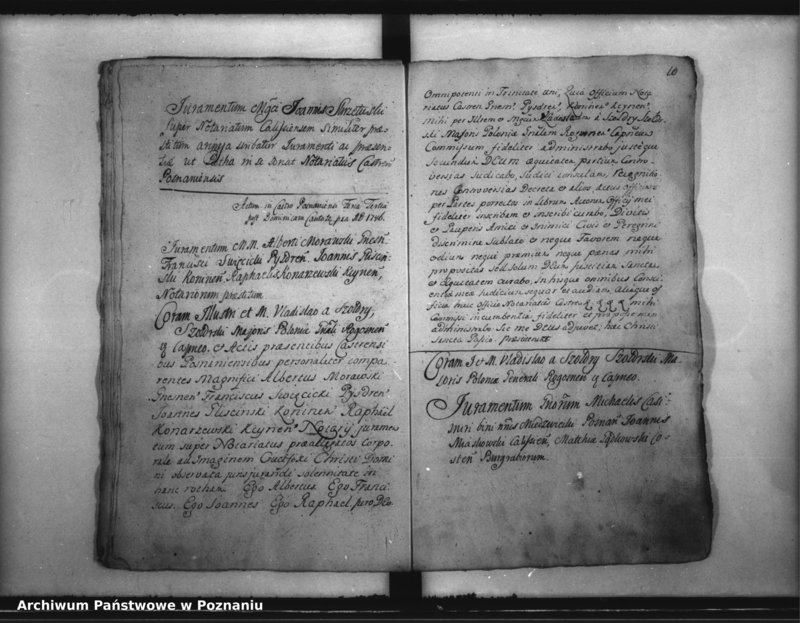 Juramentum Mgci Joannis
super Notariatum Calisiensem similiter præ
stitum Juramenti ac præsens
ut in se sonat Notariatus Castren
Posnaniensis
Actum in Castro Posnaniensi Feria Tertia
post Dominicam Cantate, 1746.
Juramentum M.M. Alberti Morawski Gnesn
Francisci Pysdren Joannis
Koninen Raphaelis Konarzewski Kcynen
Notariorum præstitum
Coram Illustri et M. Vladislao a Szoldry,
Szoldrski Majoris Poloniæ Gnāli
Capneo. et Actis præsentibus Castrensi
bus Posnaniensibus personaliter compa
rentes Magnifici Albertus Morawski
Gnesnen Franciscus Swięcicki Pysdren
Joannes Koninen Raphael
Konarzewski Kcynen Notarij juramen
tum super Notariatus præallegatos corpo
rale ad Imaginem Christi Domi
ni observata jurisjurandi solennitate in
hanc rotham. Ego Albertus Ego Franci
scus. Ego Joannes Ego Raphael, juro Deo.
10
Omnipotenti in Trinitate uni, Quia officium Nota
riatus Castren Gnesn, Pysdren, Koninen, Kcynen,
mihi per Illrem et Mgcum Ladislaum a Szoldry Szoldr
ski Majoris Poloniæ Gnālem Capneum
Commissum fideliter administrabo justèque
secundum Deum æquitatem partium Contro
versias judicabo, judici consulam,
nes Controversias Decreta et alios Actus officiose
per Partes porrectos in librum Actorum Officij mei
fideliter inscribam et inscribi curabo, Divitis
et Pauperis Amici et Inimici Civis et Peregrini
discrimine sublato et neque Favorem neque
odium neque premium neque pœnas mihi
propositas sed solum Deum justitiam Sanctam
et æquitatem curabo, In hisque omnibus Consci
entia mea judicium sequar et audiam, aliaque of
ficia huic officio Notariatus mihi
Commissi incumbentia fideliter et
administrabo Sic me Deus adjuvet, hæc Christi
Sancta Passio.
Coram I et M. Vladislao a Szoldry Szoldrski Ma
joris Poloniæ Generali Capneo.
Juramentum Gnorum Michaelis Casi
miri Posnan Joannis
Calisien, Matthiæ Co
sten Burgrabiorum.
Archiwum Państwowe w Poznaniu